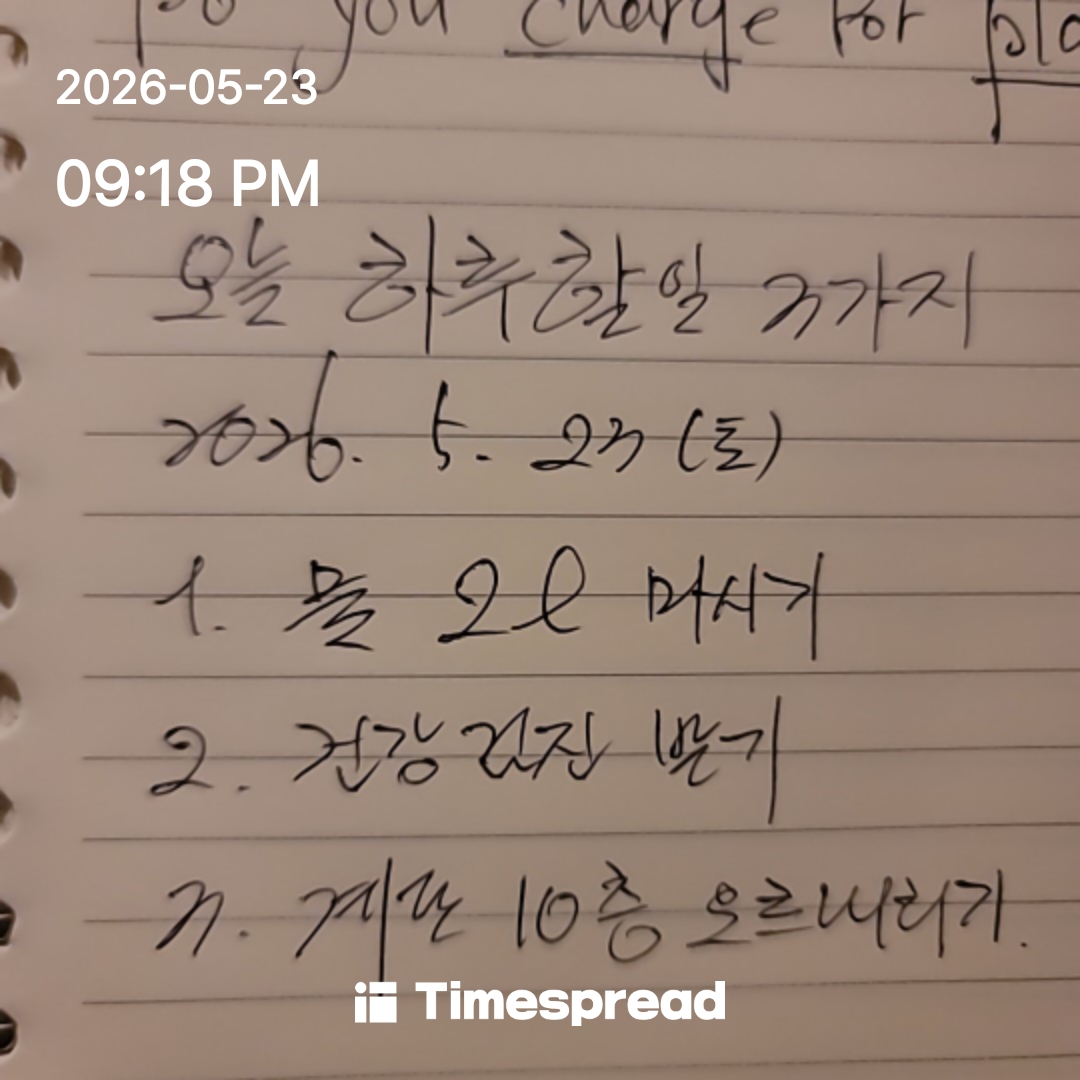 Do you charge for pla
2026-05-23
09:18 PM
오늘 하루 할일 3가지
2026. 5. 23 (토)
1. 물 2ℓ 마시기
2. 건강검진 받기
3. 계단 10층 오르내리기.
Timespread